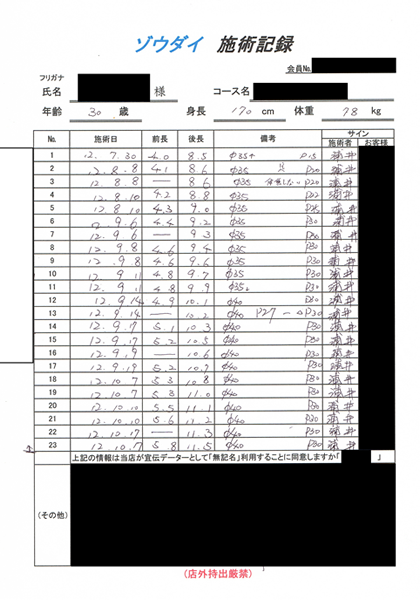 ゾウダイ 施術記録
会員No.
フリガナ
氏名 様 コース名
年齢 30 歳 身長 170 cm 体重 78 kg
No. 施術日 前長 後長 備考 サイン
施術者 お客様
1 12. 7. 30 4.0 8.5 φ35
2 12. 8. 8 4.1 8.6 φ35 P20
3 12. 8. 8 — 8.6 φ35 P20
4 12. 8. 10 4.2 8.8 φ35 P22
5 12. 8. 10 4.3 9.0 φ35
6 12. 9. 6 4.4 9.2 φ35 P30
7 12. 9. 6 — 9.3 φ35 P30
8 12. 9. 8 4.6 9.4 φ35 P30
9 12. 9. 8 4.6 9.6 φ35 P30
10 12. 9. 11 4.8 9.7 φ35 P30
11 12. 9. 11 4.8 9.9 φ35 P30
12 12. 9. 14 4.9 10.1 φ40 P30
13 12. 9. 14 — 10.2 φ40 P27 → P30
14 12. 9. 17 5.1 10.3 φ40 P30
15 12. 9. 17 5.2 10.5 φ40 P30
16 12. 9. 19 — 10.6 φ40 P30
17 12. 9. 19 5.2 10.7 φ40 P30
18 12. 10. 7 5.3 10.8 φ40 P30
19 12. 10. 7 5.3 11.0 φ40 P30
20 12. 10. 10 5.5 11.1 φ40 P30
21 12. 10. 10 5.6 11.2 φ40 P30
22 12. 10. 17 — 11.3 φ40 P30
23 12. 10. 17 5.8 11.5 φ40 P30
上記の情報は当店が宣伝データーとして「無記名」利用することに同意しますか「 」
(その他)
(店外持出厳禁)